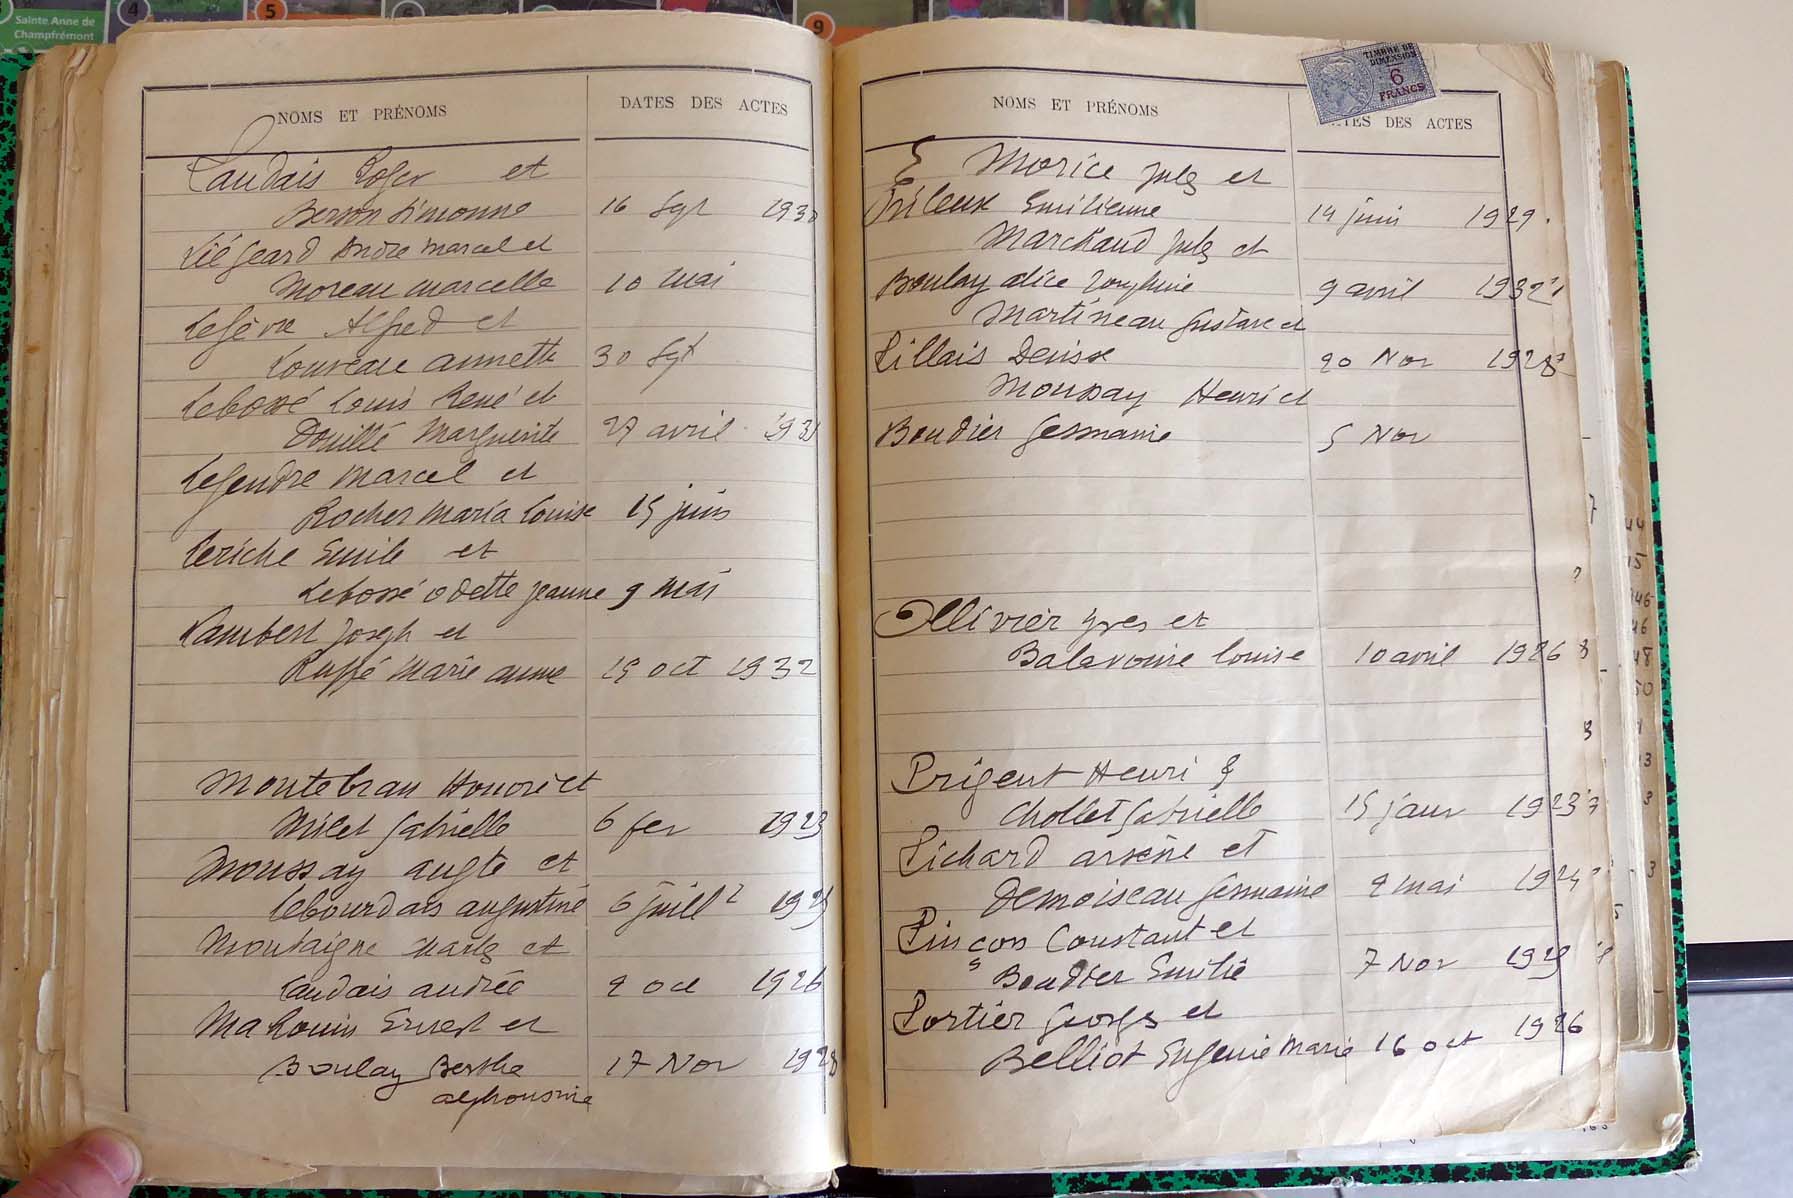 Sainte Anne de
Champfrémont
4
5
9
NOMS ET PRÉNOMS
DATES DES ACTES
Landais Roger et
Berson Simonne 16 Sept 1930
Liégeard André Marcel et
Moreau Marcelle 10 Mai
Lefèvre Alfred et
Louveau Annette 30 Sept
Lebossé Louis René et
Douillé Marguerite 27 avril 1931
Legendre Marcel et
Rocher Maria Louise 15 juin
Leriche Emile et
Lebossé Odette Jeanne 9 Mai
Lambert Joseph et
Ruppé Marie Anne 15 oct 1932
Montebran Honoré et
Milet Gabrielle 6 fev 1923
Moussay Augte et
Lebourdais Augustine 6 Juillt
Montaigne Charles et
Landais Andrée 2 oct 1926
Marouin Ernest et
Boulay Berthe 17 Nov 1928
Alphonsine
TIMBRE DE
DIMENSION
6
FRANCS
NOMS ET PRÉNOMS
DATES DES ACTES
Morice Jules et
Emilienne 14 juin 1929
Marchaud Jules et
Boulay Alice 9 avril 1932
Martineau Gustave et
Pillais Denise 20 Nov 1928
Moussay Henri et
Boudier Germaine 5 Nov
Ollivier Yves et
Balavoine Louise 10 avril 1926
Prigent Henri &
Chollet Gabrielle 15 janv 1923
Pichard Arsène et
Demoiseau Germaine 2 mai 1924
Pinçon Constant et
Boudier Emilie 7 Nov
Portier Georges et
Belliot Eugenie Marie 16 oct 1926